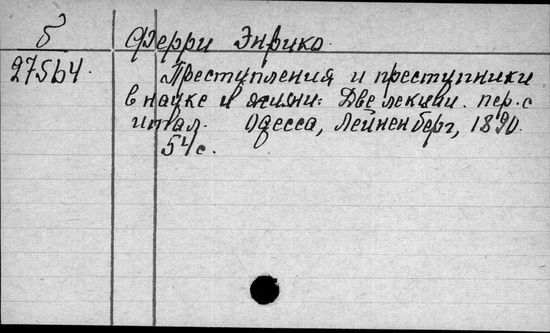 б Ферри Энрико.
27564. Преступления и преступники
в науке и жизни: Две лекции. пер. с
итал. Одесса, Лейненберг, 1890.
54 с.